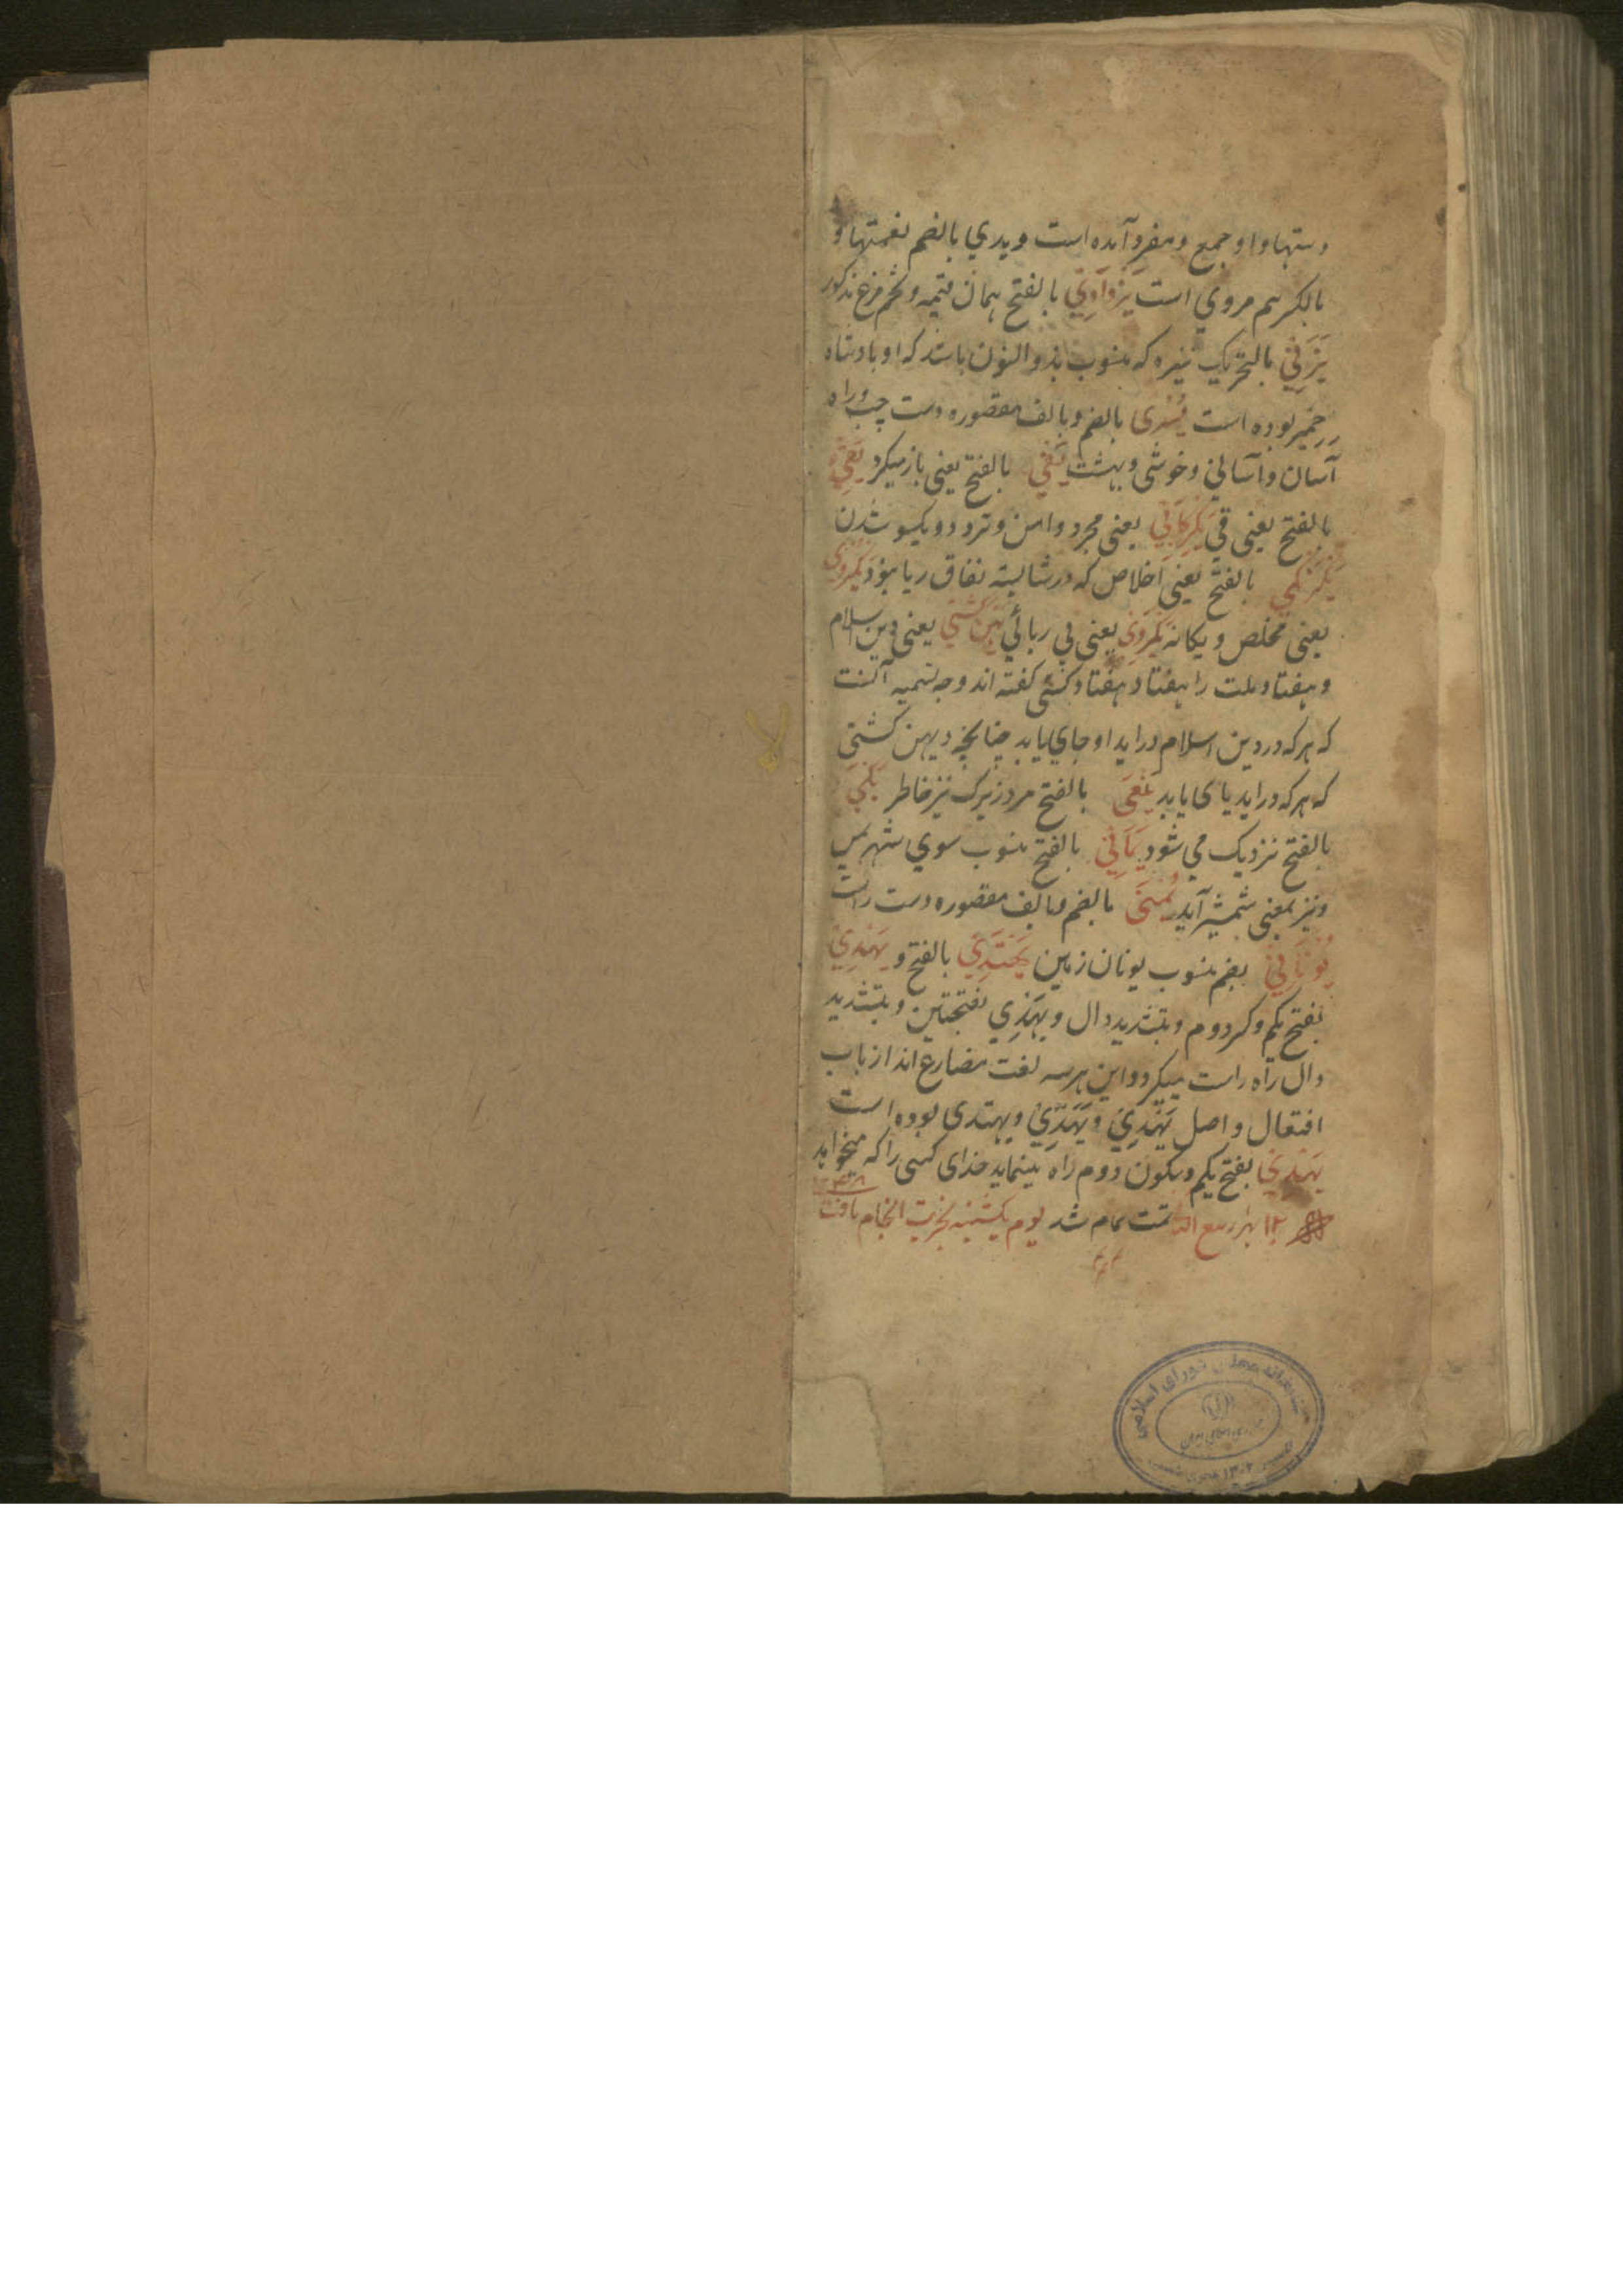 دستها و او جمع و مفرد آمده است و یدي بالضم نعمتها و
بالکسر هم مروي است یزدادي بالفتح همان قیمه و تخم مرغ مذکور
یزني بالتحریک نیزه که منسوب بذو النون باشد که او بادشاه
حمیر بوده است یسری بالضم و بالف مقصوره دست چپ و راه
آسان و آسانی و خوشی و بهشت بالفتح یعنی باز میکرد
بالفتح یعنی قی یعنی مجرد و امن و تردد و یکسو شدن
یکرنگي بالفتح یعنی اخلاص که در شایبه نفاق ریا نبود یکروی
یعنی مخلص و یکانه یکروی یعنی بی ریائي یعنی دین اسلام
و هفتاد ملت را هفتاد و هفتاد کشتی کفته اند وجه تسمیه آنست
که هر که در دین اسلام دراید او جاي یابد چنانچه در بهین کشتی
که هر که دراید یابد یلمعی بالفتح مرد زیرک تیز خاطر
بالفتح نزدیک می شود یماني بالفتح منسوب سوي شهر یمن
و نیز بمعنی شمشیر آید یمنی بالضم و بالف مقصوره دست راست
یوناني بضم منسوب یونان زمین یهتدي بالفتح و یهدي
بفتح یکم و کسر دوم و بتشدید دال و یهدي بفتحتین و بتشدید
دال راه راست میکرد و این هر سه لغت مضارع اند از باب
افتعال و اصل یهدي و یهدي و یهتدی بوده است
یهدي بفتح یکم و بسکون دوم راه مینماید خدای کسی را که میخواهد
۱۲ ربیع تمت تمام شد یوم یکشنبه انجام یافت
کتابخانه مجلس شورای اسلامی